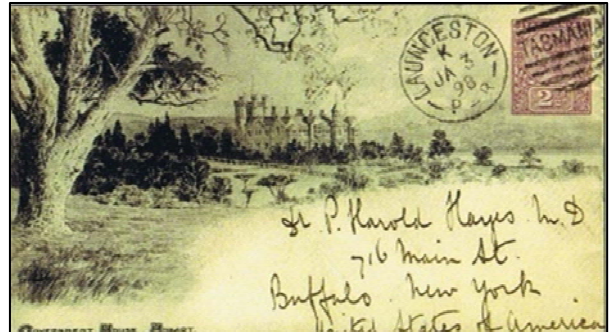 LAUNCESTON
K
JA 3
98
TASMANIA
2
Dr P. Harold Hayes M.D
716 Main St.
Buffalo. New York
United States of America
Government House, Hobart